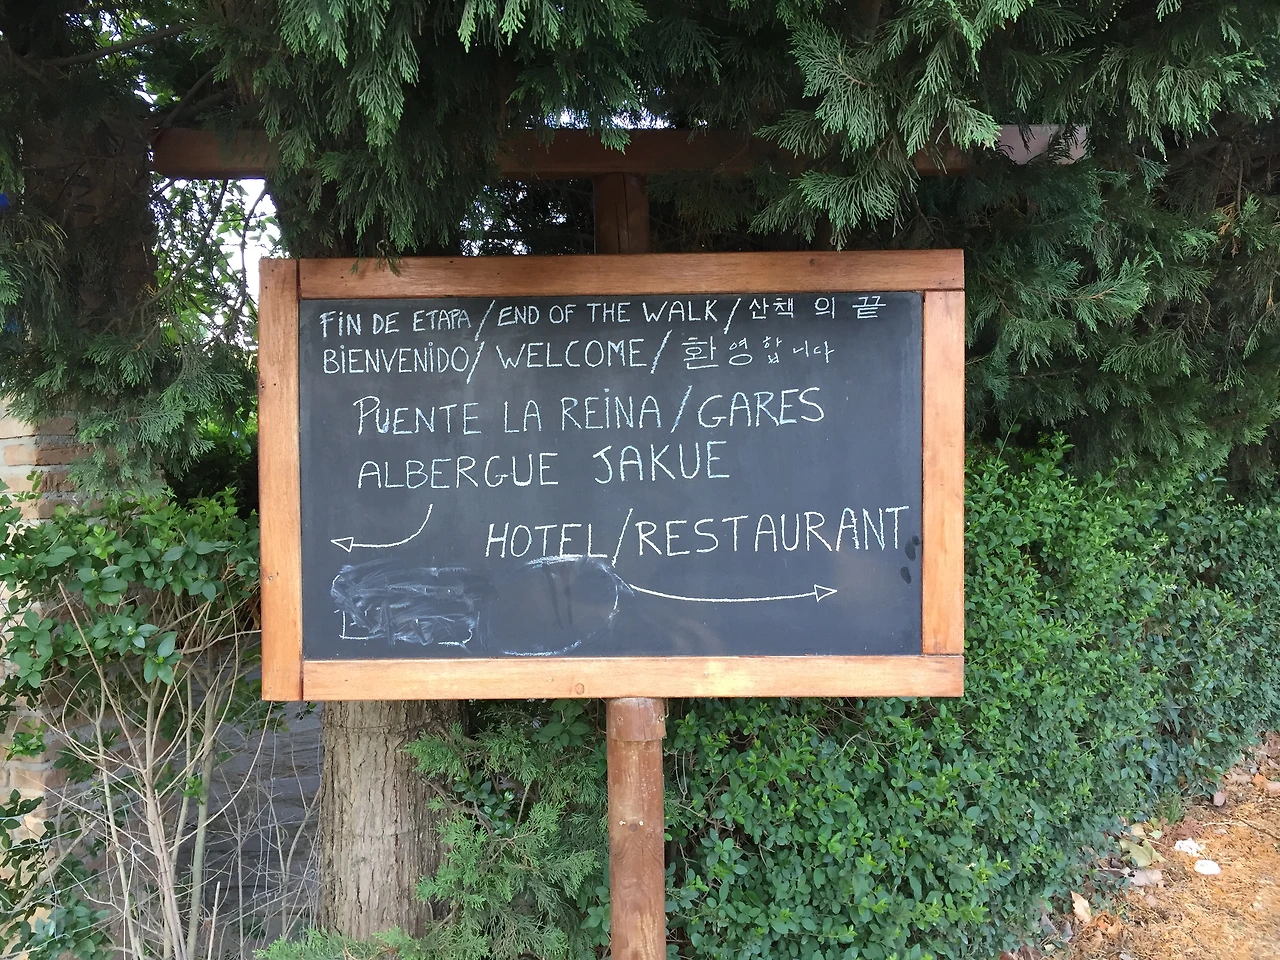 FIN DE ETAPA/END OF THE WALK/산책 의 끝
BIENVENIDO/WELCOME/환영합니다
PUENTE LA REINA/GARES
ALBERGUE JAKUE
HOTEL/RESTAURANT